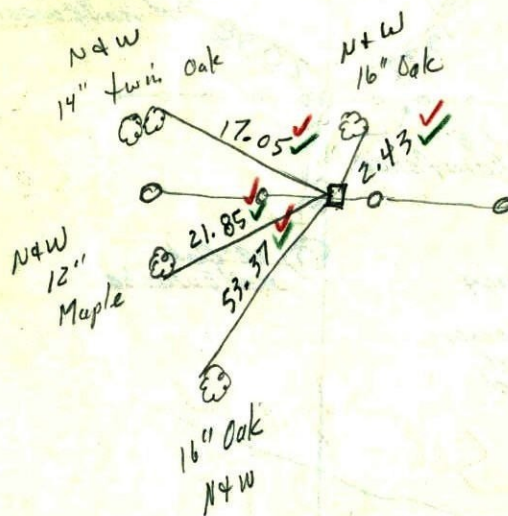 N&W
14" twin Oak
N&W
16" Oak
17.05
2.43
N&W
12"
Maple
21.85
53.37
16" Oak
N&W